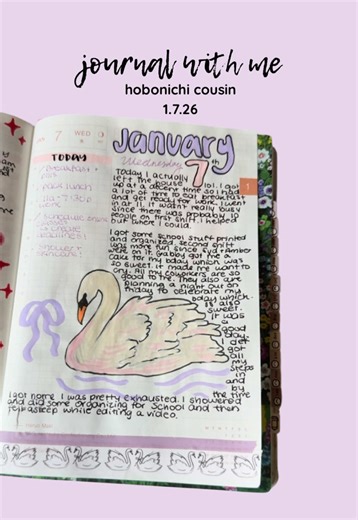 journal with me
hobonichi cousin
1.7.26
7 WED
TODAY
pack lunch
January
Wednesday 7th
Today I actually
left the house lol. I got
up at a decent time so I had
a lot of time to eat breakfast
and get ready for work. I went
in at 11. It wasn't really busy
but there was probably 10
people on first shift. I helped
out where I could.
1
I got some school stuff printed
and organized. Second shift
was more fun since Syd + Amber
were on it. Gabby got me a
cake for my bday which was
so sweet. It made me want to
cry. All my coworkers are so
good to me. They also are
planning a night out on
Friday to celebrate my
bday which
is also
sweet.
It was
a
good
day. I
def
got
all
my
steps
in
and
by
the time
I got home I was pretty exhausted. I showered
and did some organizing for school and then
fell asleep while editing a video.